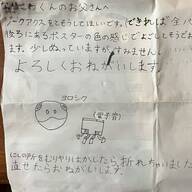 くんのお父さんへ
ークアックスをともしてほしいです。(できれば全ノ
後ろにあるポスターの色の感じでよごしてもうとお
ます。少しぬっていますがすみません。)
よろしくおねがいします。
ヨロシク
(電子音)
(このの所をむりやりはがしたら折れちゃいました
直せたらおねがいします。